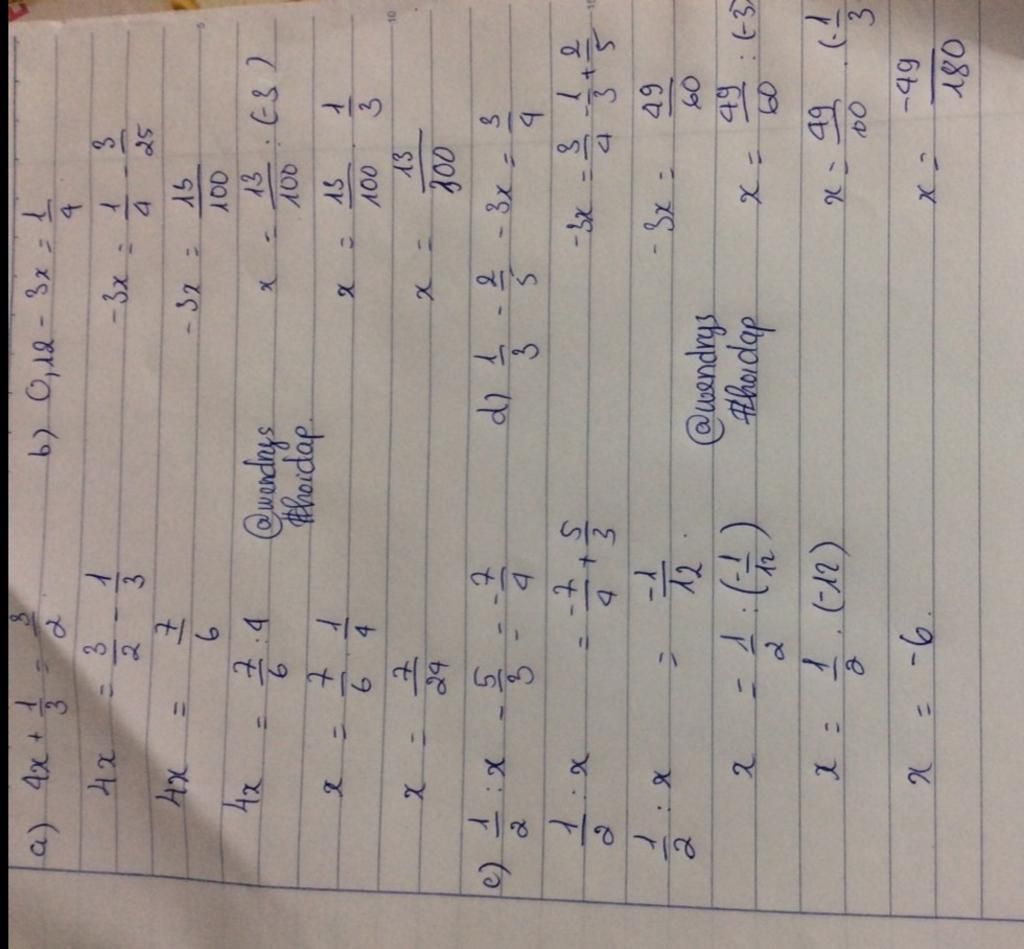 a) 4x + 1/3 = 3/2
4x = 3/2 - 1/3
4x = 7/6
4x = 7/6 : 4
x = 7/6 . 1/4
x = 7/24
@wendrys
#hoidap
b) 0,12 - 3x = 1/4
-3x = 1/4 - 3/25
-3x = 13/100
x = 13/100 : (-3)
x = 13/100 . 1/3
x = 13/300
c) 1/2 : x - 5/3 = -7/4
1/2 : x = -7/4 + 5/3
1/2 : x = -1/12
x = 1/2 : (-1/12)
x = 1/2 . (-12)
x = -6.
d) 1/3 - 2/5 - 3x = 3/4
-3x = 3/4 - 1/3 + 2/5
-3x = 49/60
x = 49/60 : (-3)
x = 49/60 . (-1/3
x = -49/180
@wendrys
#hoidap